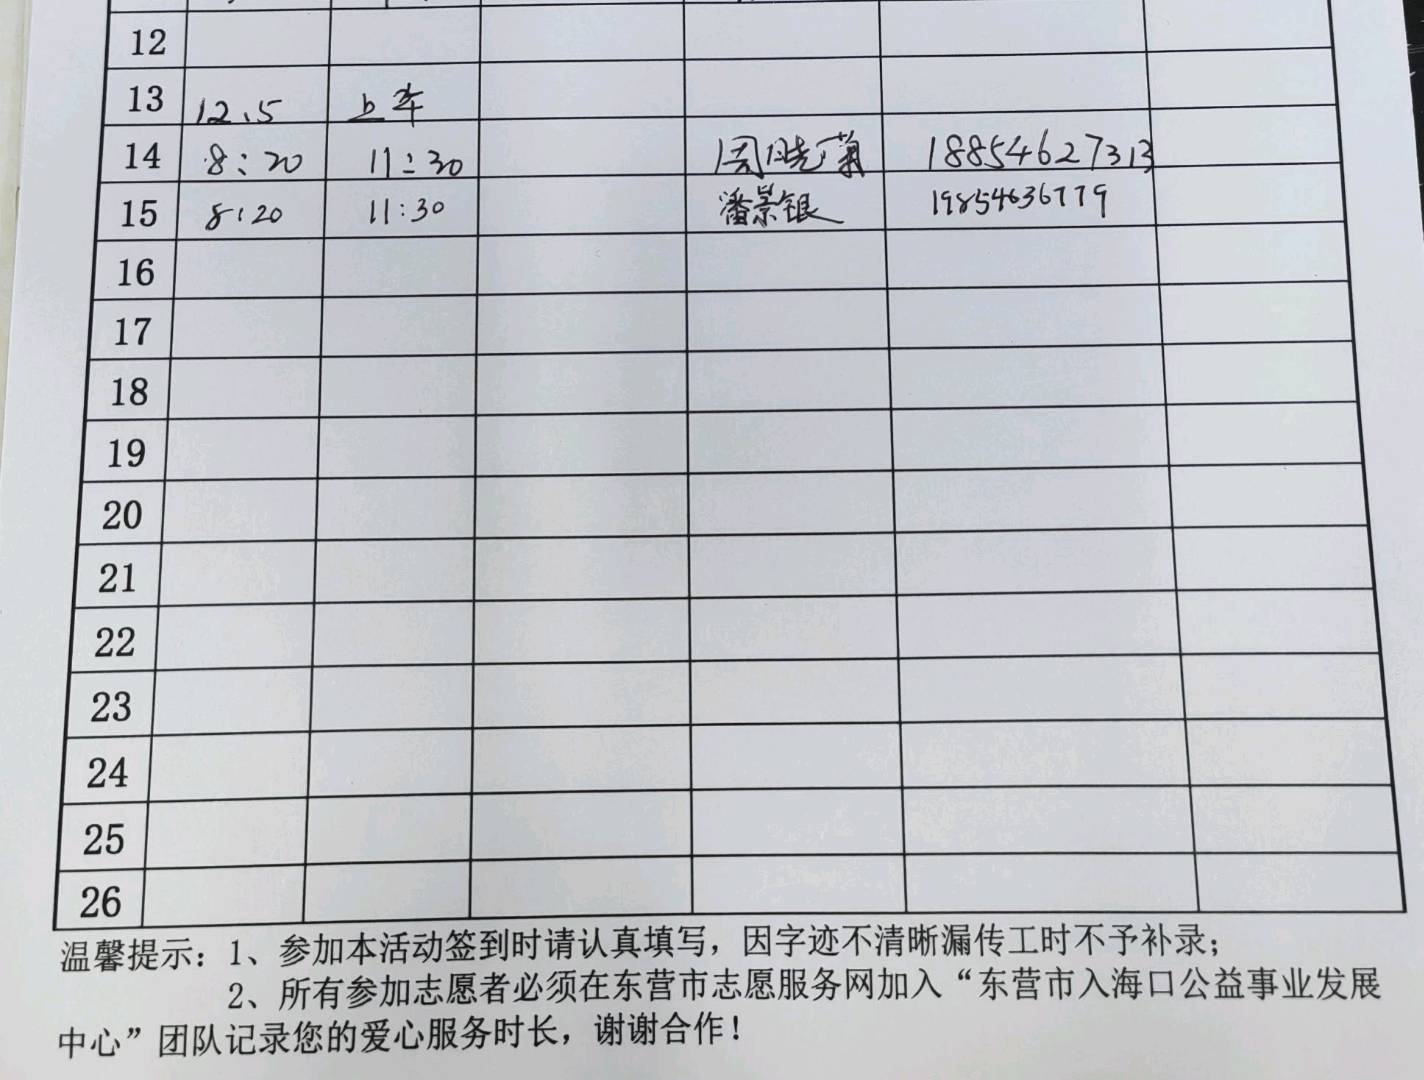 12
13 12.5 上午
14 8:20 11:30 周晓菊 18854627313
15 8:20 11:30 潘景银 19854636779
16
17
18
19
20
21
22
23
24
25
26
温馨提示：1、参加本活动签到时请认真填写，因字迹不清晰漏传工时不予补录；
2、所有参加志愿者必须在东营市志愿服务网加入“东营市入海口公益事业发展
中心”团队记录您的爱心服务时长，谢谢合作！